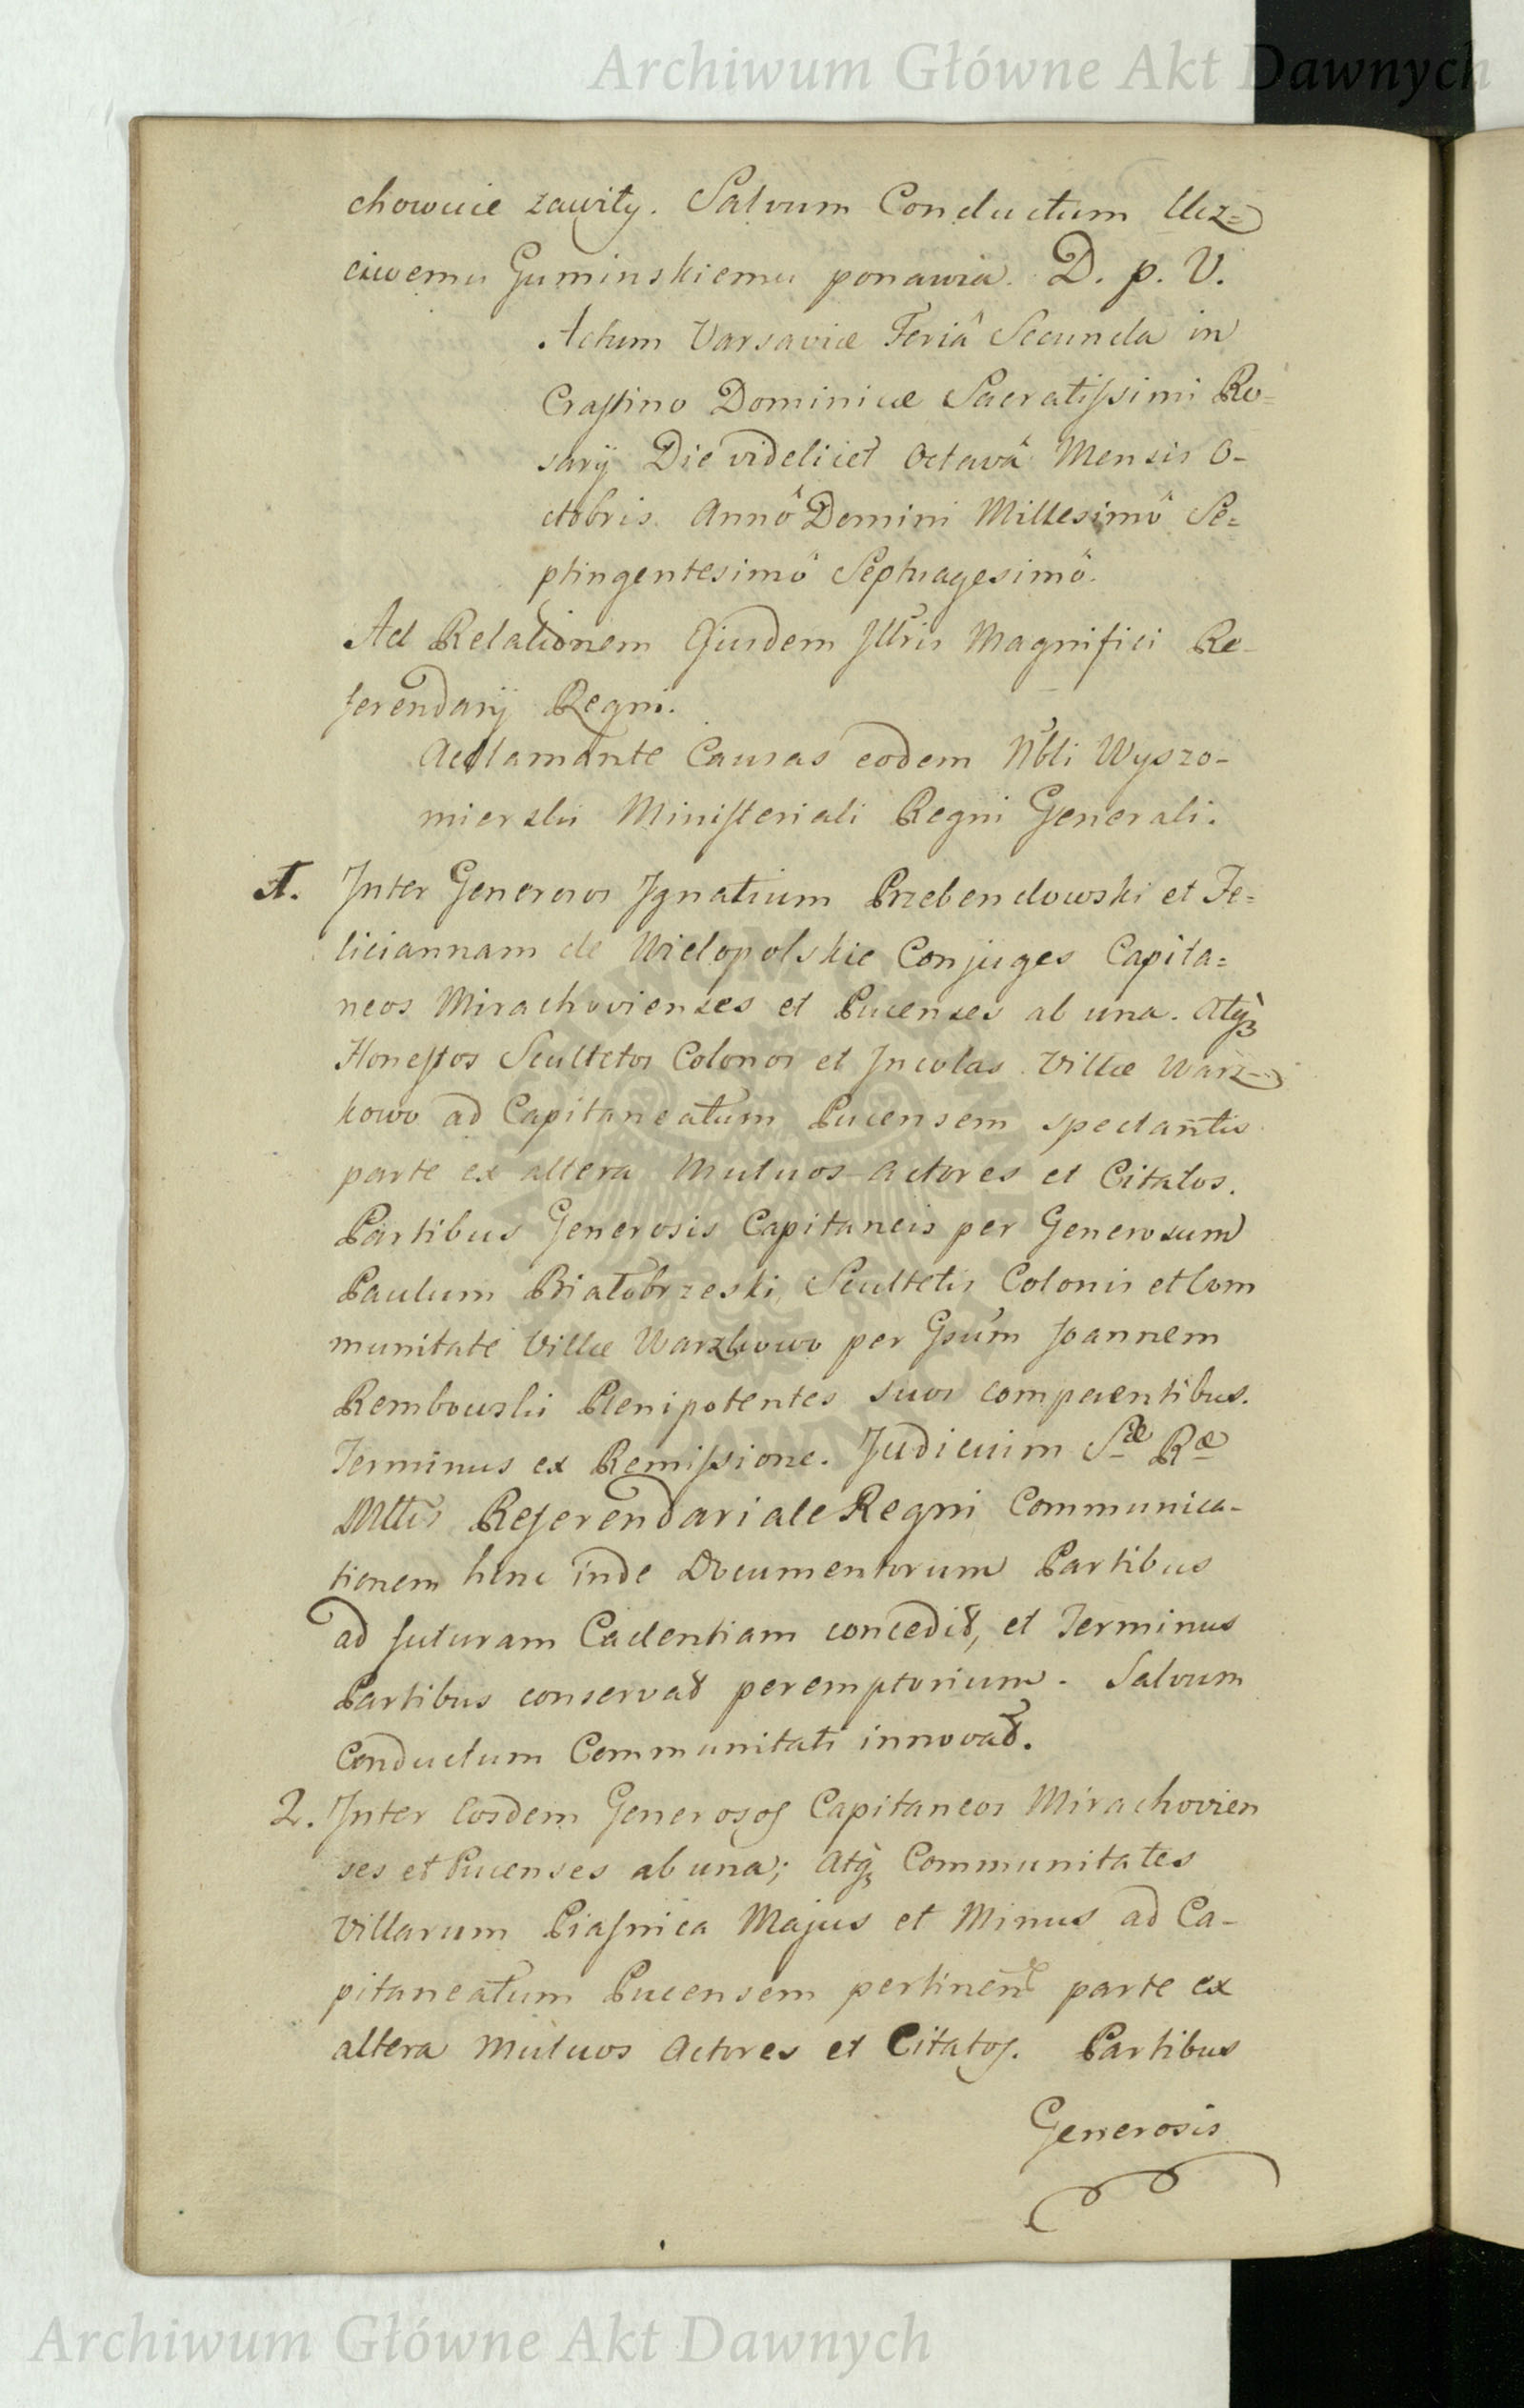 Archiwum Główne Akt Dawnych
chowuie zawity. Salvum Conductum Ucz=
ciwemu Guminskiemu ponawia. D. p. V.
Actum Varsaviæ Feriâ Secunda in
Crastino Dominicæ Sacratissimi Ro=
sarij Die videlicet Octavâ Mensis O-
ctobris Annô Domini Millesimô Se=
ptingentesimô Septuagesimô.
Ad Relationem Ejusdem Jllris Magnifici Re-
ferendarij Regni.
Acclamante Causas eodem Nbli Wyszo-
mierski Ministeriali Regni Generali.
1. Inter Generosos Ignatium Przebendowski et Fe=
liciannam de Wielopolskie Conjuges Capita=
neos Mirachovienses et Pucenses ab una. Atq3
Honestos Scultetos Colonos et Incolas Villæ Warz-
kowo ad Capitaneatum Pucensem spectantis
parte ex altera Mutuos Actores et Citatos.
Partibus Generosis Capitaneis per Generosum
Paulum Białobrzeski, Scultetis Colonis et Com
munitate Villæ Warzkowo per Gsum Joannem
Rembowski Plenipotentes suos comparentibus.
Terminus ex Remissione. Judicium Sæ Ræ
Mttis Referendariale Regni Communica-
tionem hinc inde Documentorum Partibus
ad futuram Cadentiam concedit, et Terminus
Partibus conservat peremptorium. Salvum
Conductum Communitati innovat.
2. Inter Eosdem Generosos Capitaneos Mirachovien
ses et Pucenses ab una; Atq3 Communitates
Villarum Piasnica Majus et Minus ad Ca-
pitaneatum Pucensem pertinen parte ex
altera Mutuos Actores et Citatos. Partibus
Generosis
Archiwum Główne Akt Dawnych